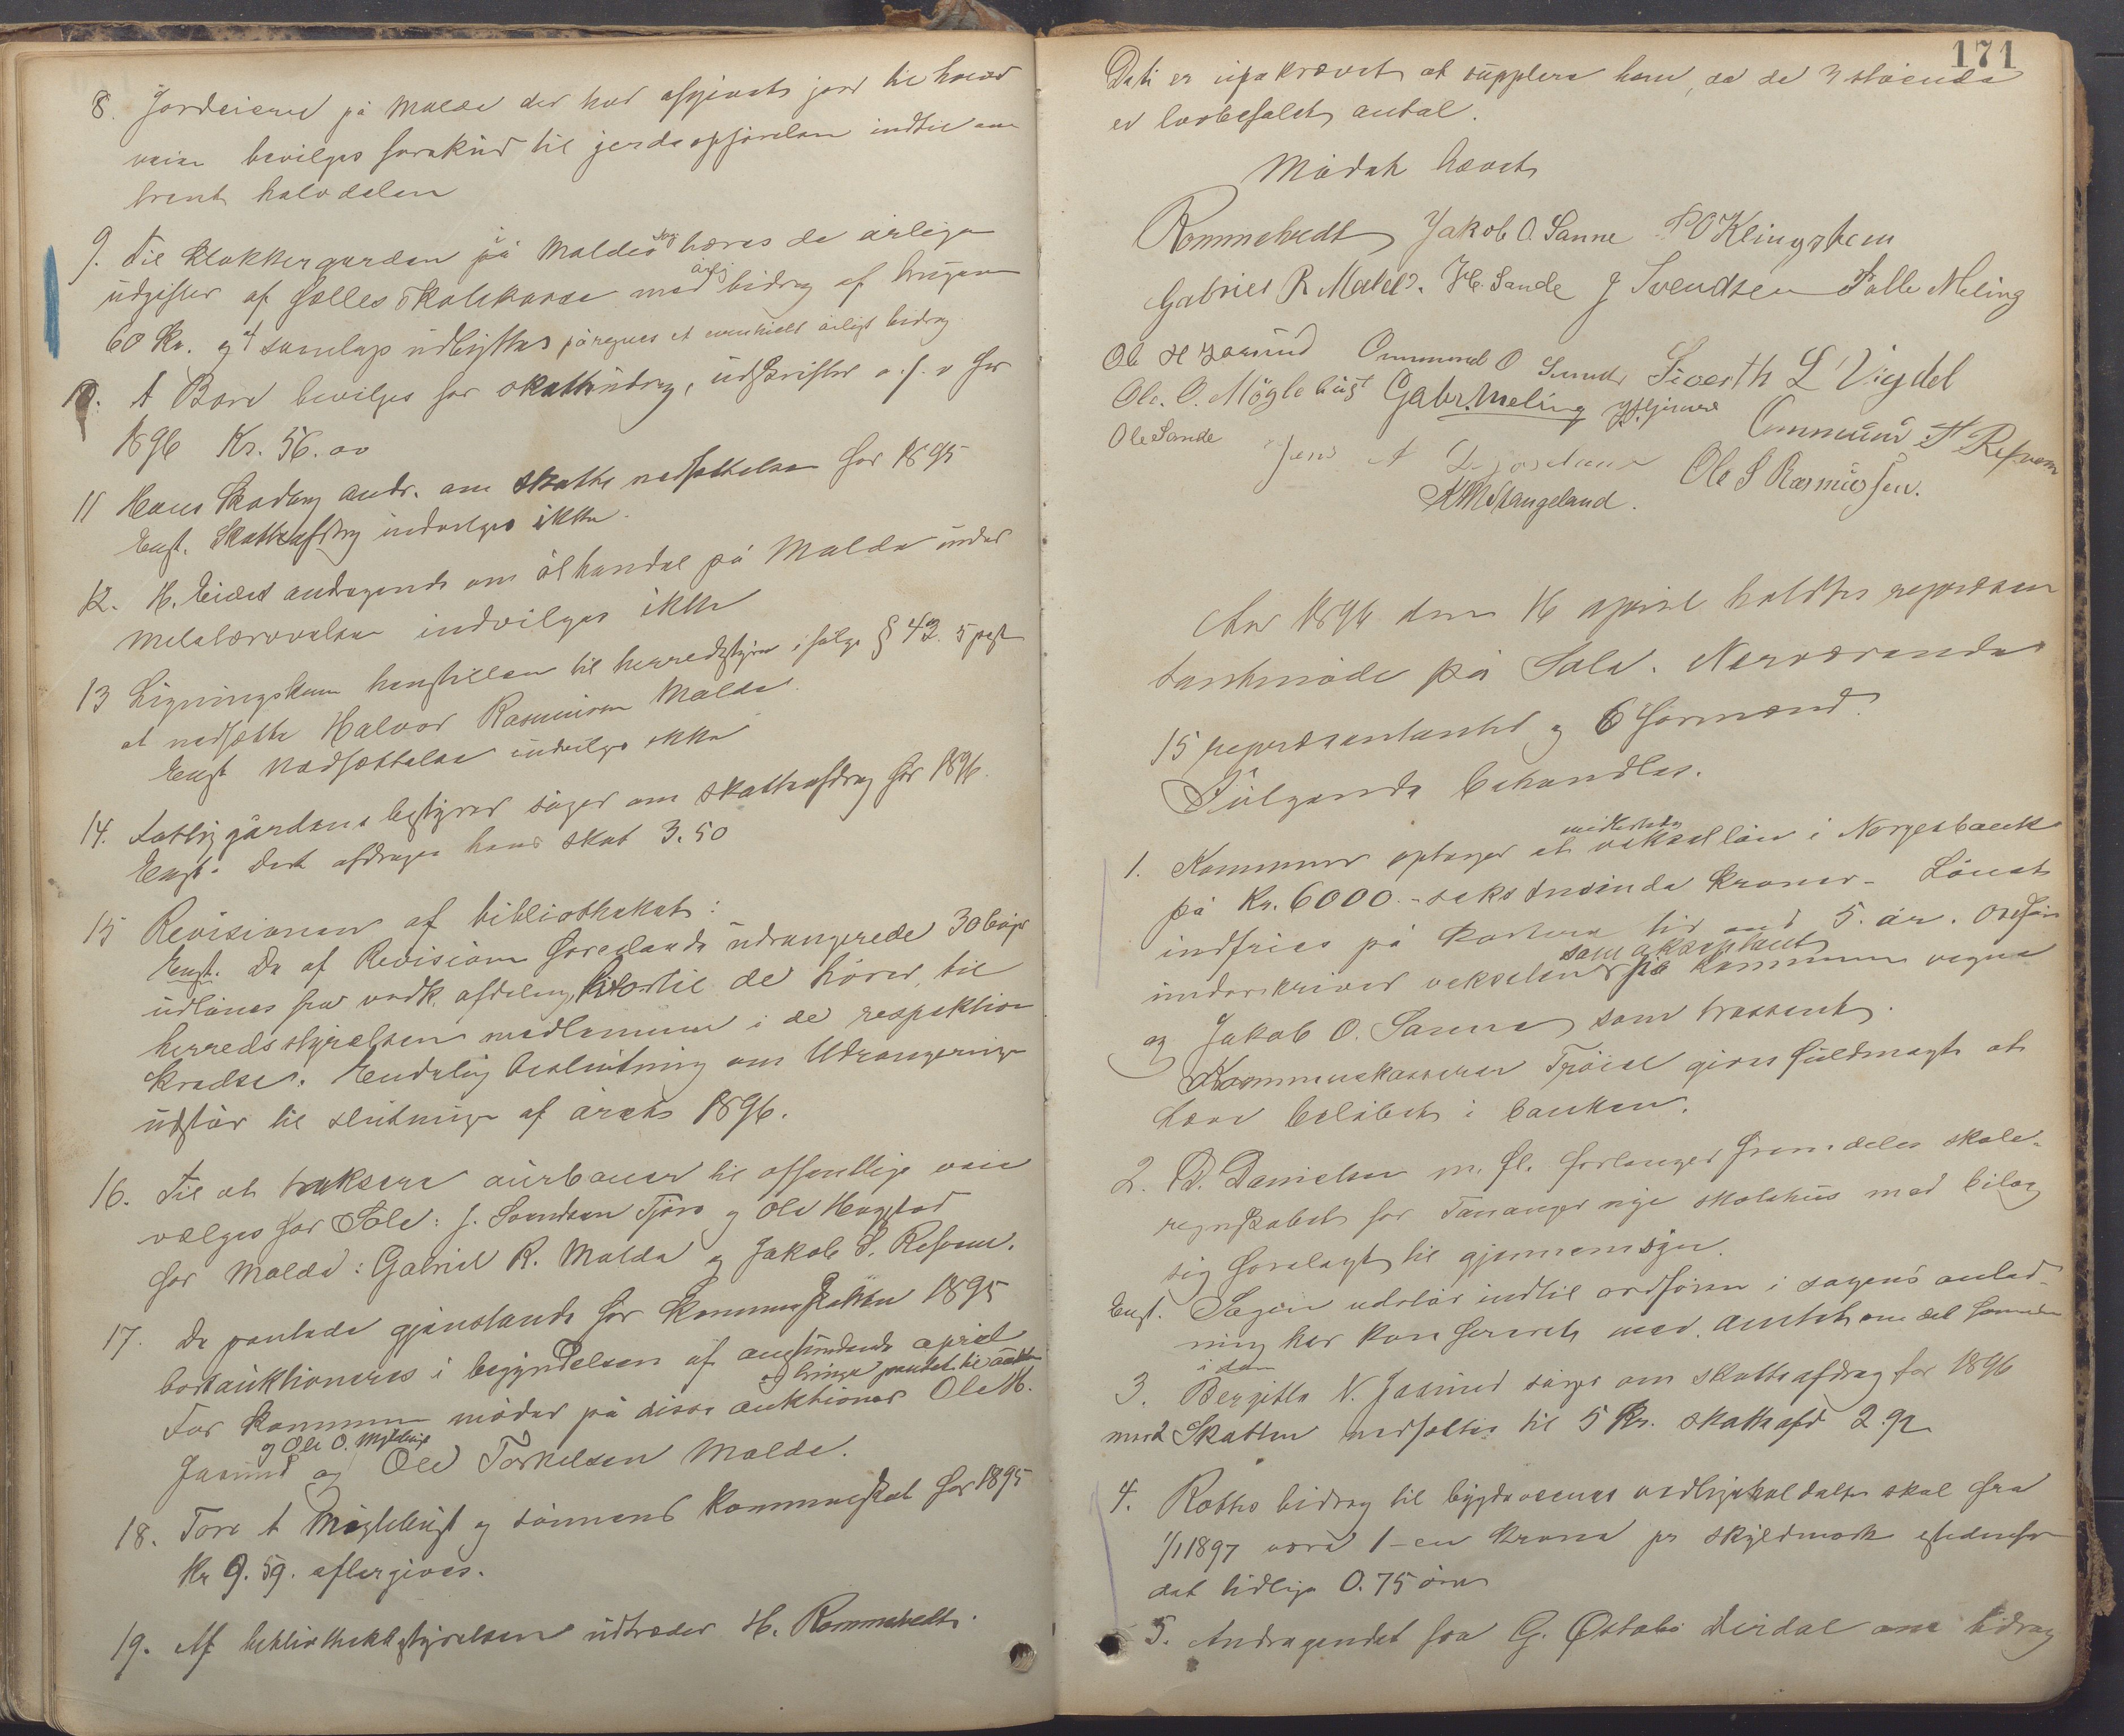 8. Jordeierne på Malde der har afgivet jord til hoved
veien bevilges forskud til gjerdeopførelsen indtil om
trent halvdelen
9. Til Klokkergarden på Maldes bæres de årlige
udgifter af fælles skolekasse med årlig bidrag af
60 Kr. og af samlags udbyttes påregnes et eventuelt årligt bidrag
10. A Bore bevilges for skatteudtog, udskrifter o. s. v for
1896 Kr. 56.00
11 Hans Skadberg andr. om skatte nedsættelse for 1895
Enst. Skatteafdrag indvilges ikke.
12. H. Eides andragende om ølhandel på Malde under
indvilges ikke
13 Ligningskom henstillen til herredstyre ifølge § 43. 5 post
at nedsætte Halvor Rasmussen Malde.
Enst. Nedsættelse indvilges ikke
14. Fattiggårdens bestyrer søger om skatteafdrag for 1896.
Enst. Det afdrages hans skat 3.50
15 Revisionen af bibliotheket:
Enst. De af Revision foreslaade udrangerede 30 bøger
udlånes fra vedk. afdeling hvortil de hører, til
herredsstyrelsen medlemmer i de respektive
kredse. Endelig beslutning om Udrangering
udstår til slutningen af året 1896.
16. Til at taksere aurbaner til offentlige veie
vælges for Sole: J. Svendsen Tjora og Ole Hagestad
for Malde: Gabriel R. Malde og Jakob S. Refsnes.
17. De pantede gjenstande for Kommuneskatten 1895
bortauktioneres i begyndelsen af anstundende april
og bringe pantet til auktion
For Kommunen møder på disse auktioner Ole H.
og Ole O. Myklebust
Jaasund og Ole Torkelsen Malde.
18. Tore A Myklebust og sønnens kommuneskat for 1895
Kr 9.59. eftergives.
19. Af bibliothekbestyrelsen udtræder H. Rommetvedt.
171
Dette er upåkrævet at supplere ham, da de 3 stående
er lovbefalet antal.
Mødet hævet
Rommetvedt Jakob O. Sanne P O Klingsheim
Gabriel R Malde. H. Sande J Svendsen Palle Meling
Ole H Jaasund Ommund O Sunde Siverth L Vigdel
Ole. O. Myglebust Gabr. Meling
Ole Sande Jens A Ommund T Refsnes
Stangeland. Ole S Rasmussen.
Aar 1896 den 16 april holdtes repræsen
tantmøde på Sole. Nærværende
15 repræsentanter og 6 formænd.
Følgende behandles.
midlertidig
1. Kommunen optager et veksellån i Norgesbank
på Kr. 6000 - seks tusinde kroner - Lånet
indfries på kortere tid end 5. år. Ordfører
som akseptant
underskriver vekselen på Kommunens vegne
og Jakob O. Sanne som trassent.
Kommunekasserer Tjøise gives fuldmagt at
hæve beløbet i banken.
2. D. Danielsen m. fl. forlanger fremdeles skole-
regnskabet for Tananger nye skolehus med bilag
sig forelagt til gjennemsyn.
Enst. Sagen udstår indtil ordføren i sagens anled-
ning har konfereret med Amtet om det fornødne
i den
3. Bergitte N. Jaasund søger om skatteafdrag for 1896
mod Skatten nedsættes til 5 Kr. skatteafd 2.92
4. Rettes bidrag til bygdeveienes vedligeholdelse skal fra
1/1 1897 være 1 - en krone pr skyldmark istedenfor
det tidlige 0.75 øre
5. Andragendet fra G. Østabø Dirdal om bidrag